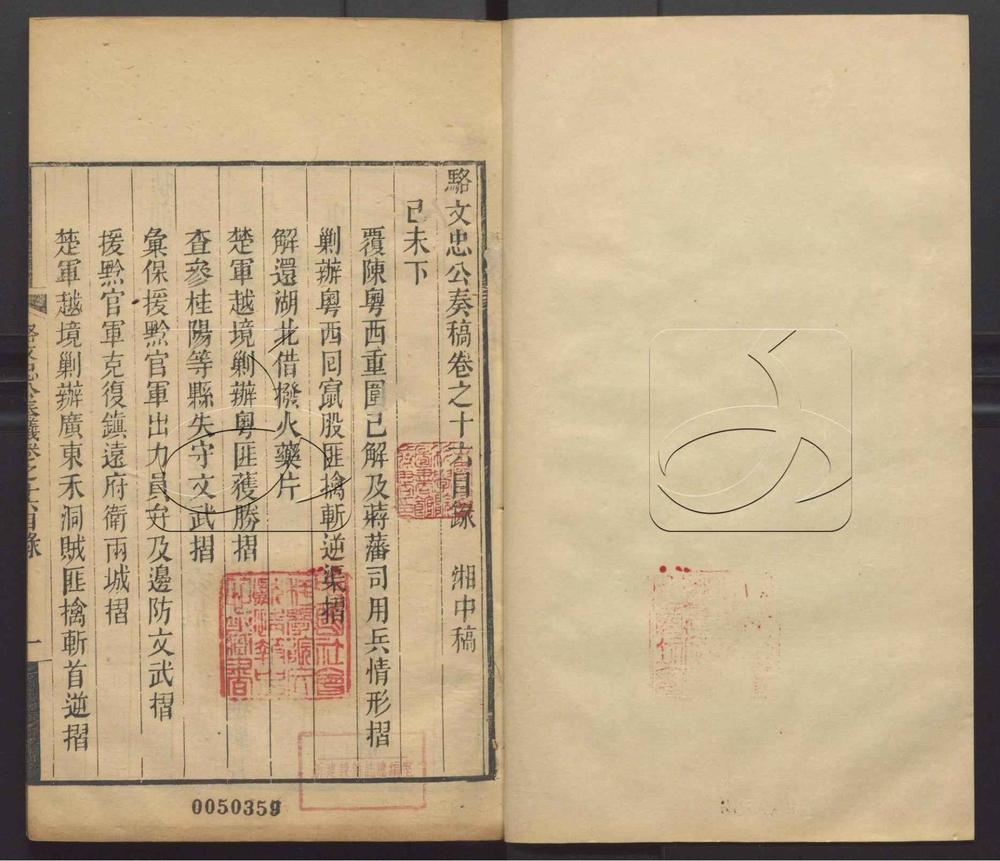 駱文忠公奏稿卷之十六目錄　湘中稿
己未下
覆陳粵西重圍已解及蔣藩司用兵情形摺
剿辦粵西囘竄股匪擒斬逆渠摺
解還湖北借撥火藥片
楚軍越境剿辦粵匪獲勝摺
查參桂陽等縣失守文武摺
彙保援黔官軍出力員弁及邊防文武摺
援黔官軍克復鎮遠府衛兩城摺
楚軍越境剿辦廣東禾洞賊匪擒斬首逆摺
駱文忠公奏議卷之十六目錄
一
0050359